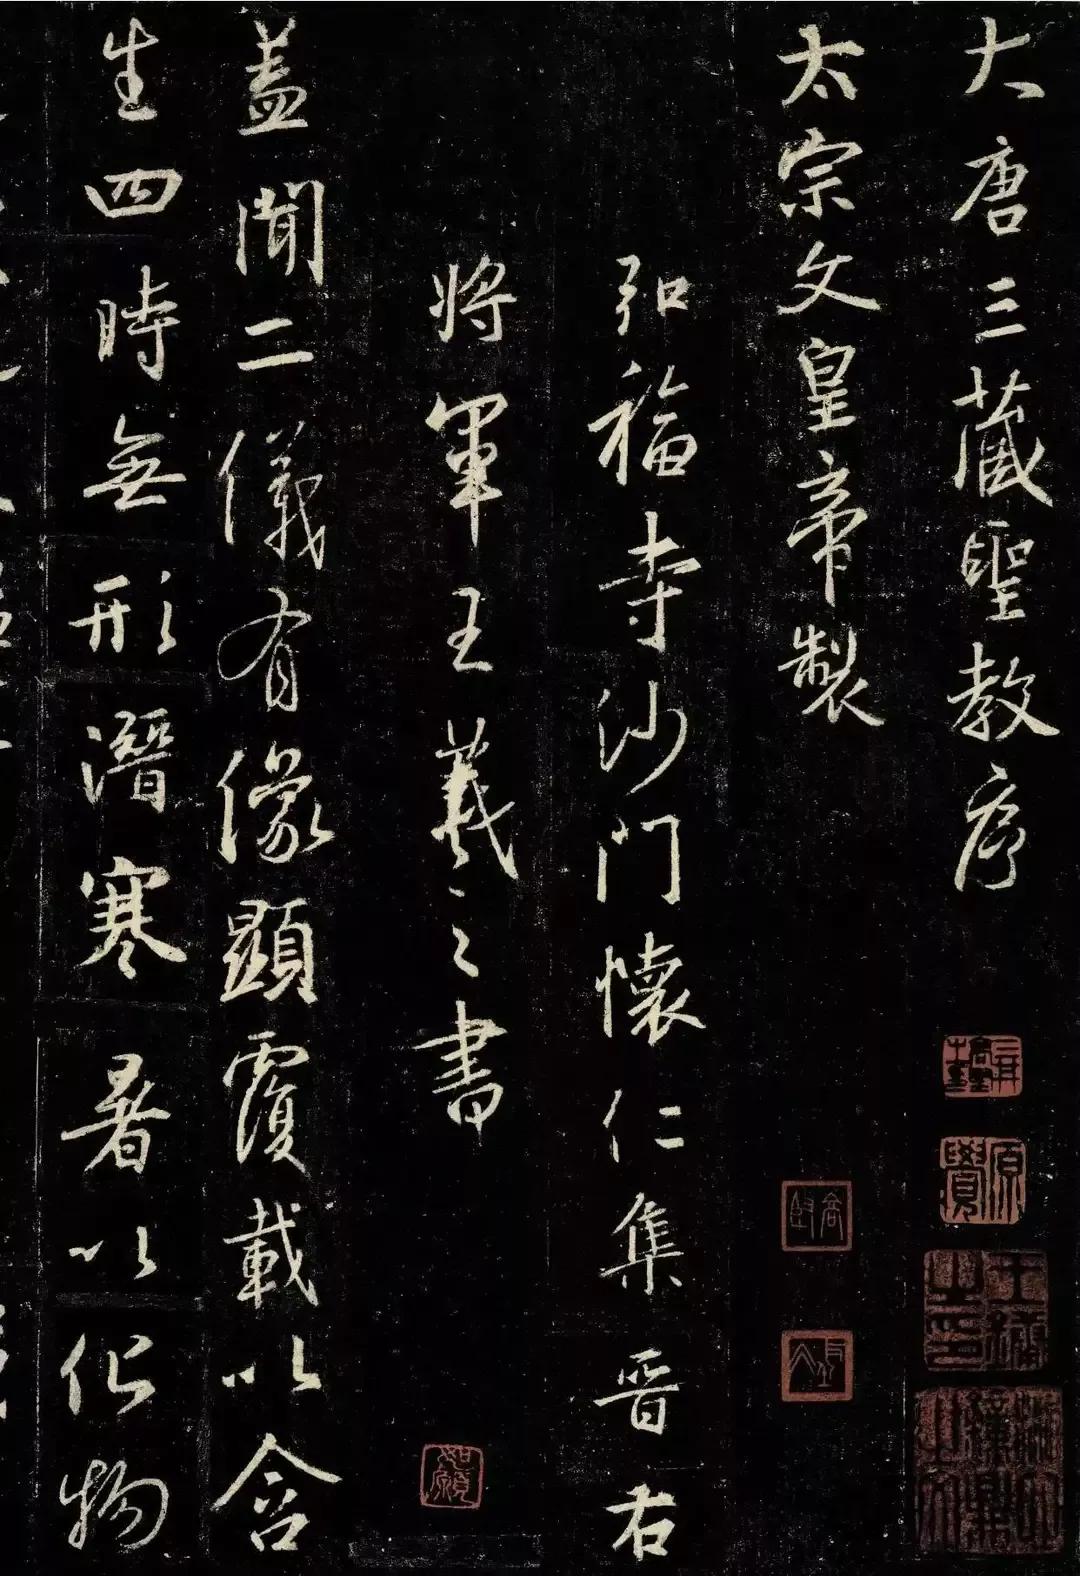 大唐三藏聖教序
太宗文皇帝製
弘福寺沙門懷仁集晉右
將軍王羲之書
蓋聞二儀有像顯覆載以含
生四時無形潛寒暑以化物
原覺
如願